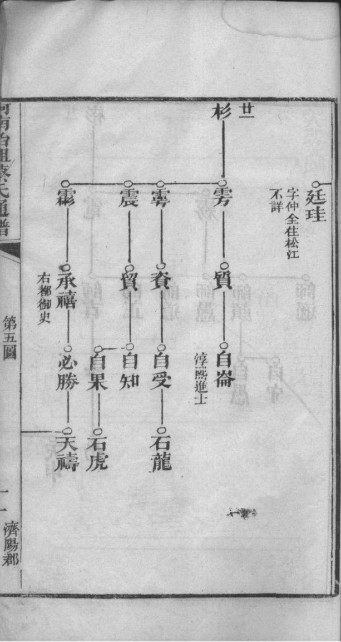 廷珪
字仲全住松江
不詳
廿一
杉
雱
質
自崙
淳熙進士
雩
賚
自受
石龍
震
貿
自知
自果
石虎
霦
承禧
右都御史
必勝
天禱
蔡氏通譜
第五圖
濟陽郡